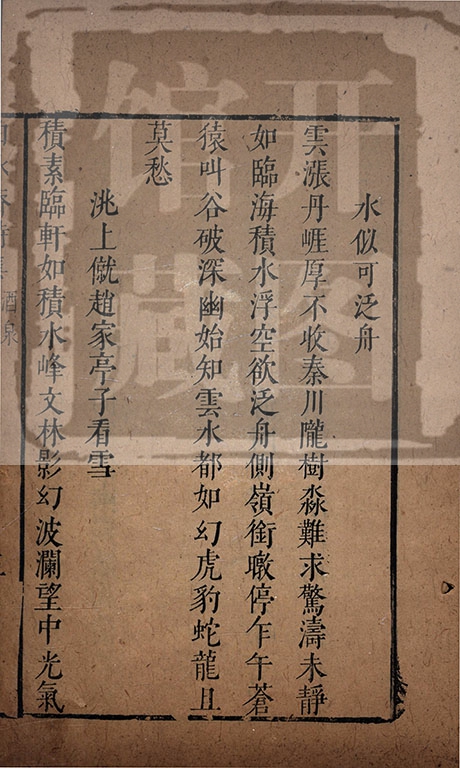 水似可泛舟
雲漲丹崕厚不收秦川隴樹淼難求驚濤未靜
如臨海積水浮空欲泛舟側嶺銜暾停乍午蒼
猿叫谷破深幽始知雲水都如幻虎豹蛇龍且
莫愁
洮上僦趙家亭子看雪
積素臨軒如積水峰文林影幻波瀾望中光氣
酒泉
开图
馆藏